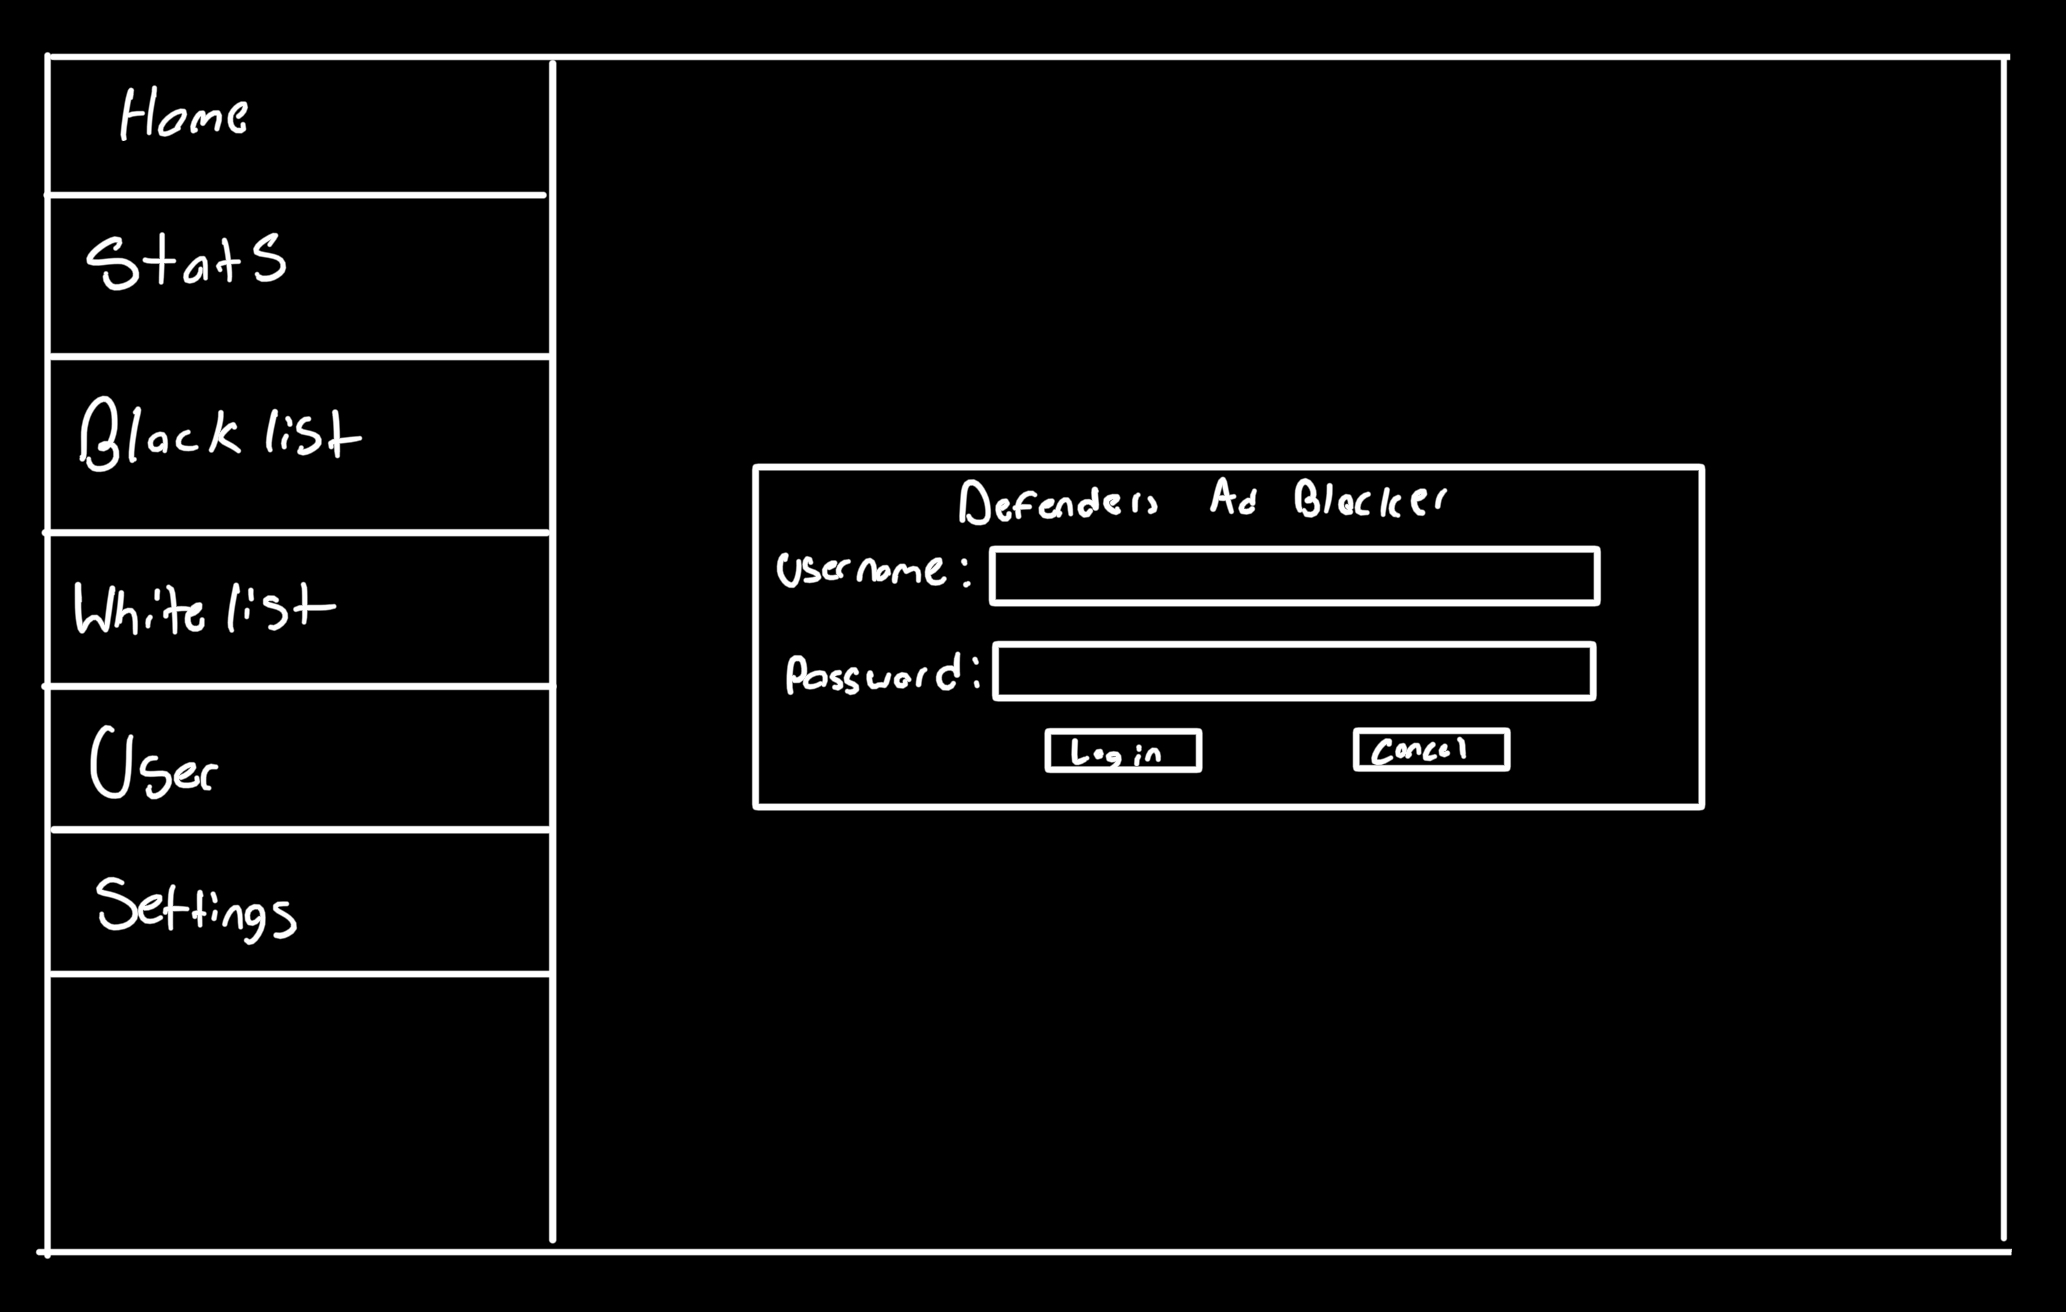 Home
Stats
Black list
White list
User
Settings
Defenders Ad Blocker
Username:
Password:
Log in
Cancel